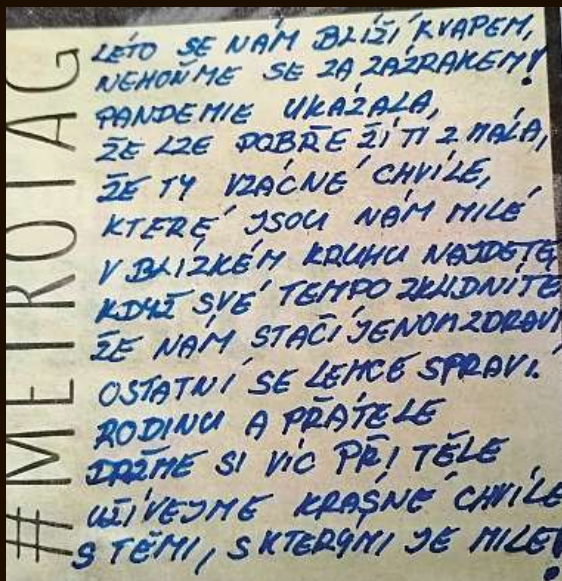 #METROTAG
LÉTO SE NÁM BLÍŽÍ KVAPEM,
NEHOŇME SE ZA ZÁZRAKEM!
PANDEMIE UKÁZALA,
ŽE LZE DOBŘE ŽÍTI Z MÁLA,
ŽE TY VZÁCNÉ CHVÍLE,
KTERÉ JSOU NÁM MILÉ
V BLÍZKÉM KRUHU NAJDETE,
KDYŽ SVÉ TEMPO ZKLIDNÍTE
ŽE NÁM STAČÍ JENOM ZDRAVÍ
OSTATNÍ SE LEHCE SPRAVÍ.
RODINU A PŘÁTELE
DRŽME SI VÍC PŘI TĚLE
UŽÍVEJME KRÁSNÉ CHVÍLE
S TĚMI, S KTERÝMI JE MILE!